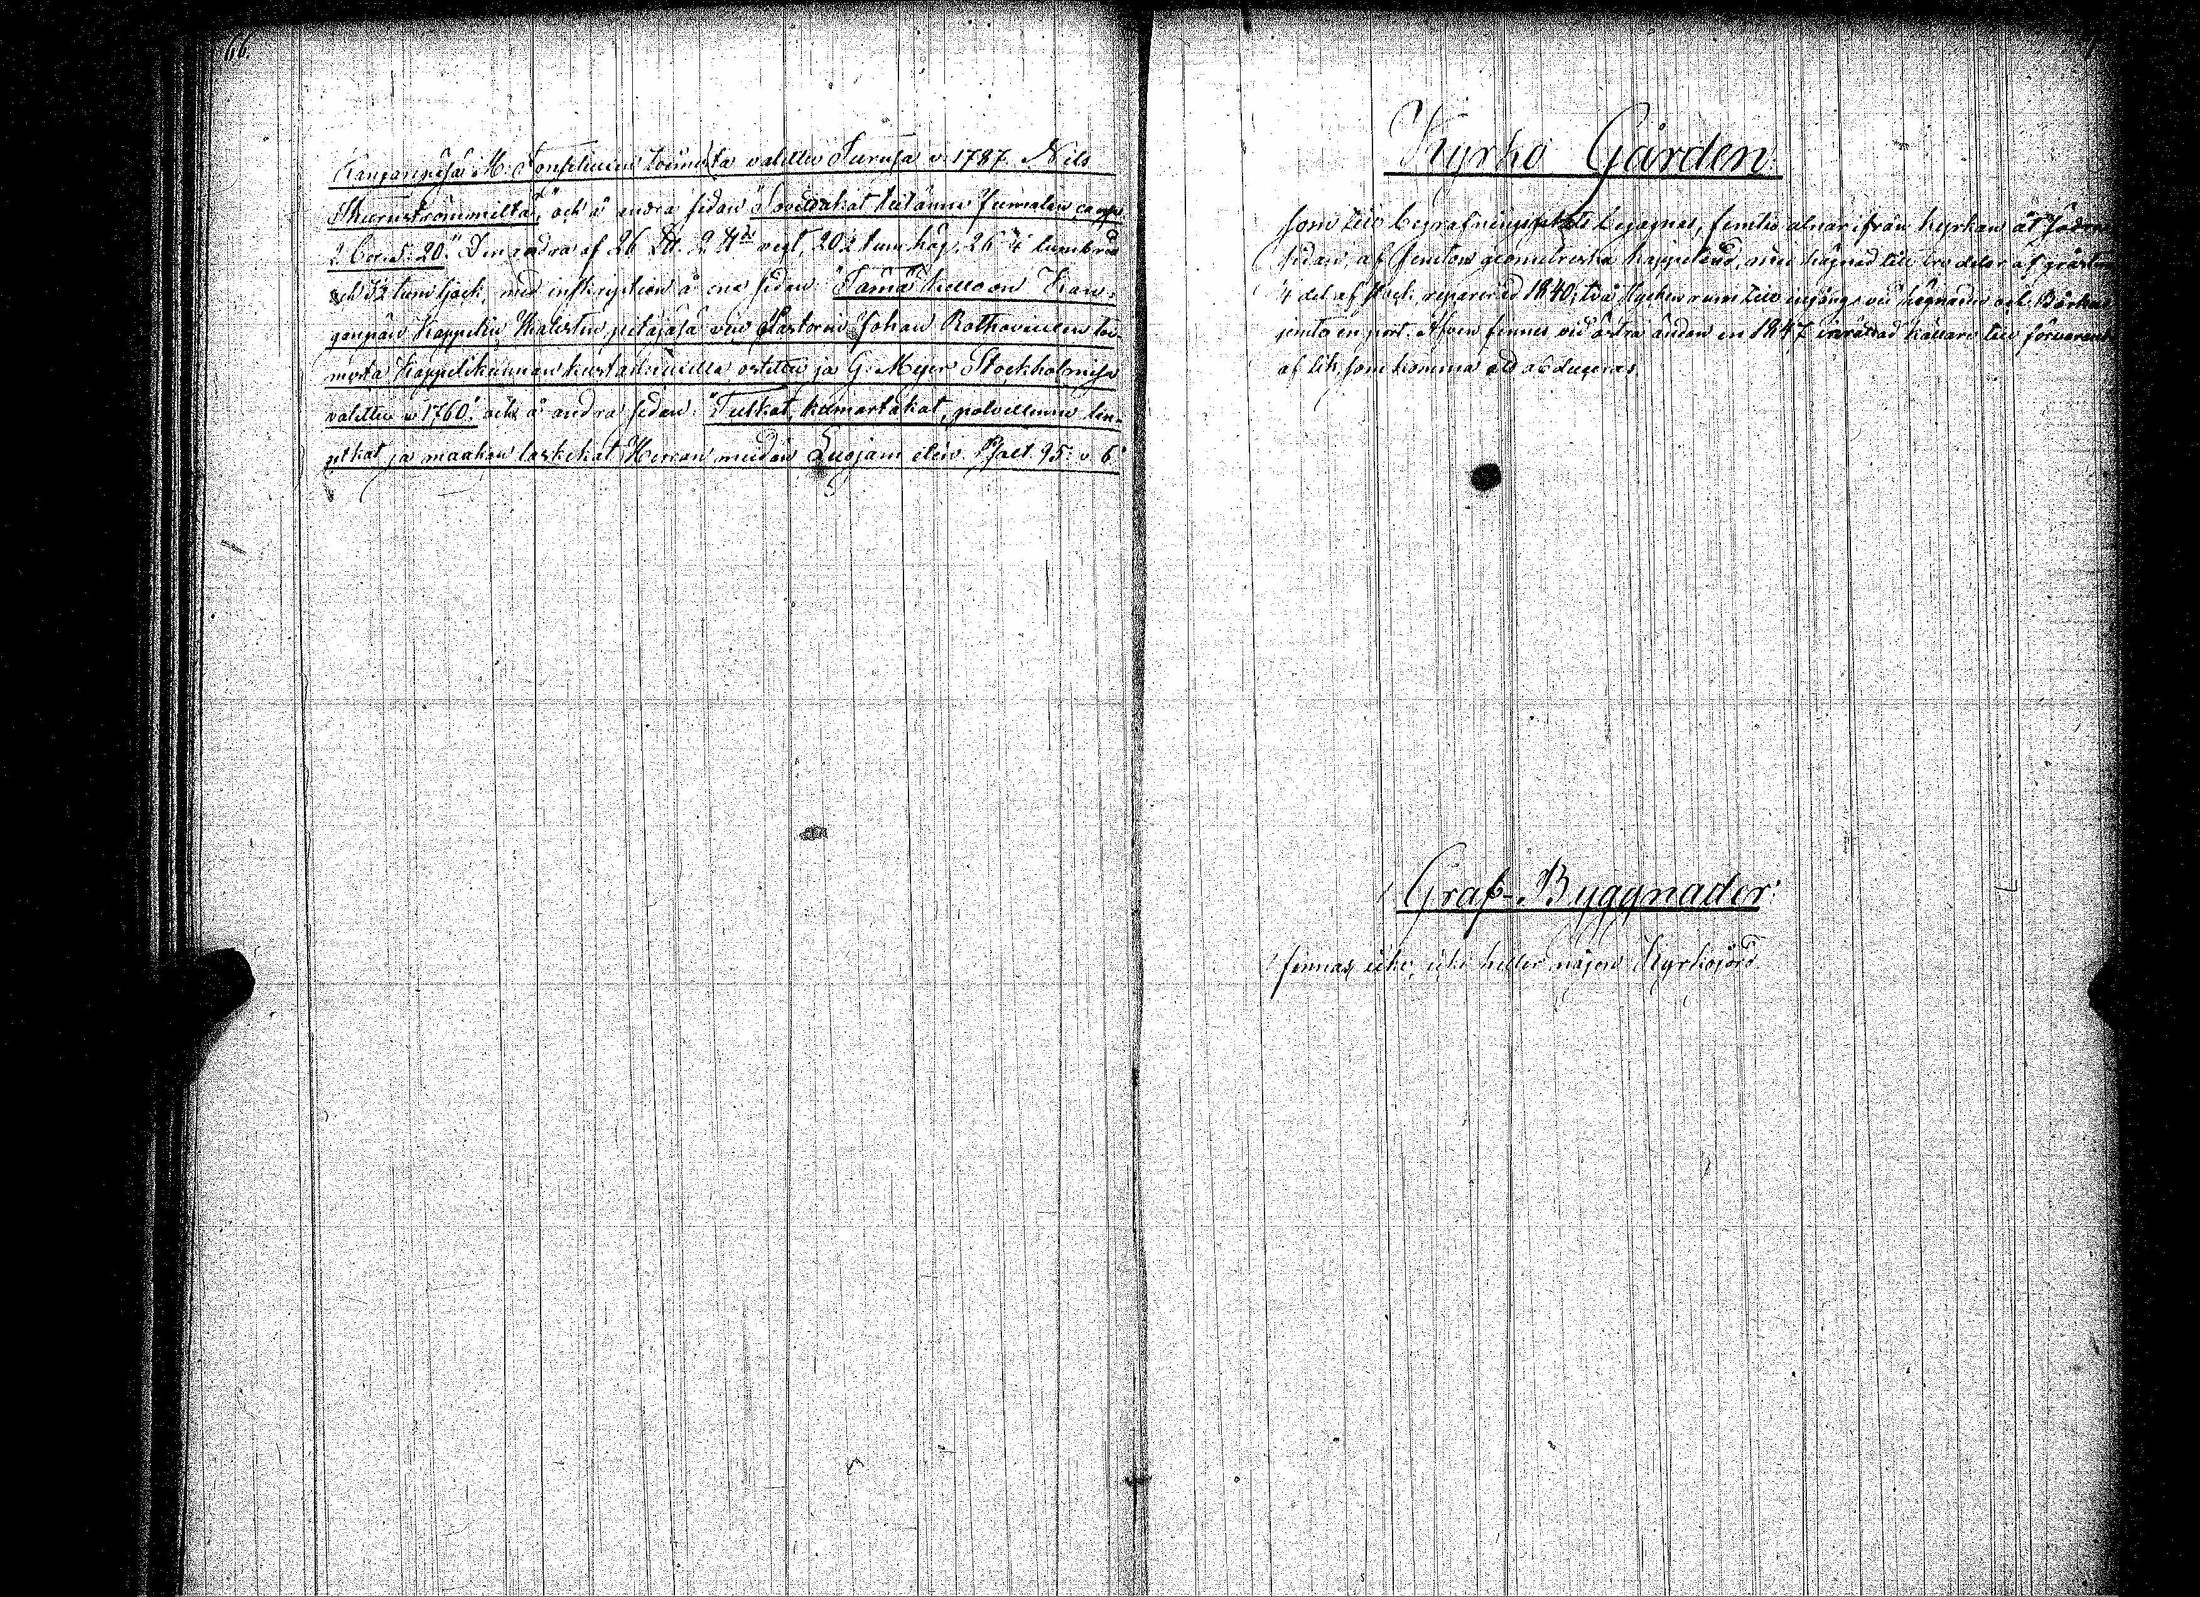 66.
Kangaspäsä M. Tonfeliuxen toimesta valettu Turusa v. 1787 Nils
Skiernströmmiltä", och å andra sidan "Sovittakat teitänne Jumalan canssa
2 Cor. 5: 20." Den andra af 26 L℔. 2 ℔ vigt, 20½ tum hög, 26¼ tum bred
och ½ tum tjock, med inskription å ena sidan: "Tämä kello on Kan-
gaspään Kappelin, Kalostin pitäjäsä, ven Pastorin Johan Rothoviuxen toi-
mesta Kappelikunnan kustannuxella ostettu ja G. Meyer Stockholmisa
valettu v. 1760." och å andra sidan: "Tulkat, kumartakat, polvillenne lan-
getkat ja maahan laskekat Herran meidän Luojam eteen. Psalt. 95: v. 6."
Kyrko Gården
som till begrafningsplats begagnas, femtio alnar ifrån kyrkan åt Södra
sidan, af femton geometriska kappeland, med hägnad till tre delar af gråsten
¼ del af stock reparerad 1840; två stycken rum till ingång vid hägnaden och
jemte en port. Äfven finnes vid östra ändan en 1847 inrättad källare till förvarande
af lik, som komma att obduceras.
Graf-Byggnader
finnas icke, icke heller någon Kyrkojord.